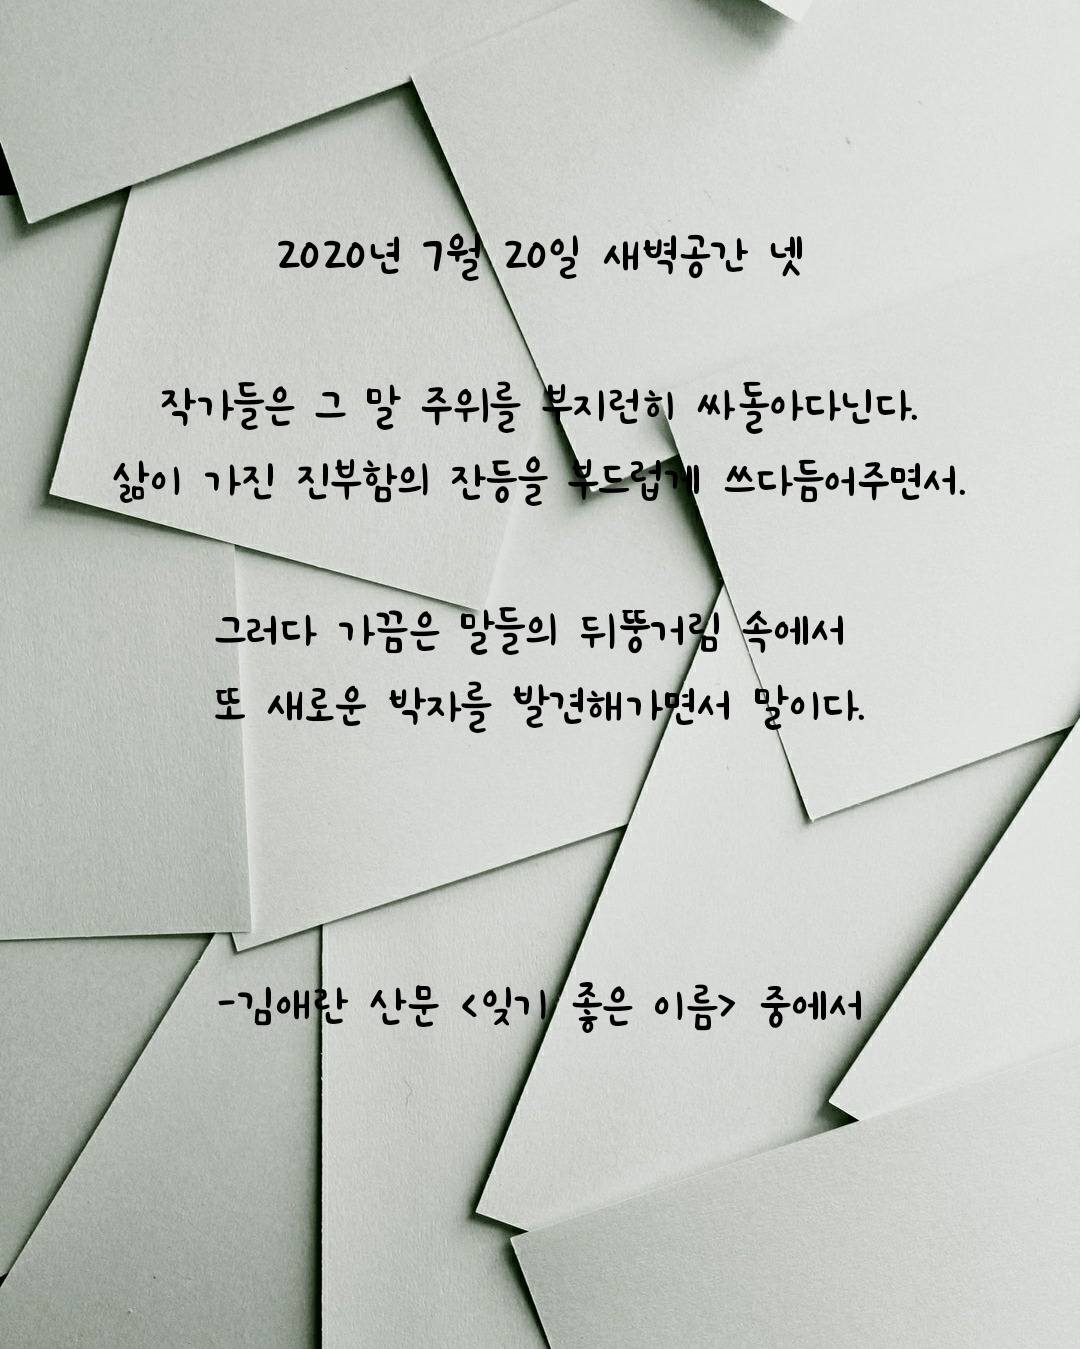 2020년 7월 20일 새벽공간 넷
작가들은 그 말 주위를 부지런히 싸돌아다닌다.
삶이 가진 진부함의 잔등을 부드럽게 쓰다듬어주면서.
그러다 가끔은 말들의 뒤뚱거림 속에서
또 새로운 박자를 발견해가면서 말이다.
-김애란 산문 <잊기 좋은 이름> 중에서